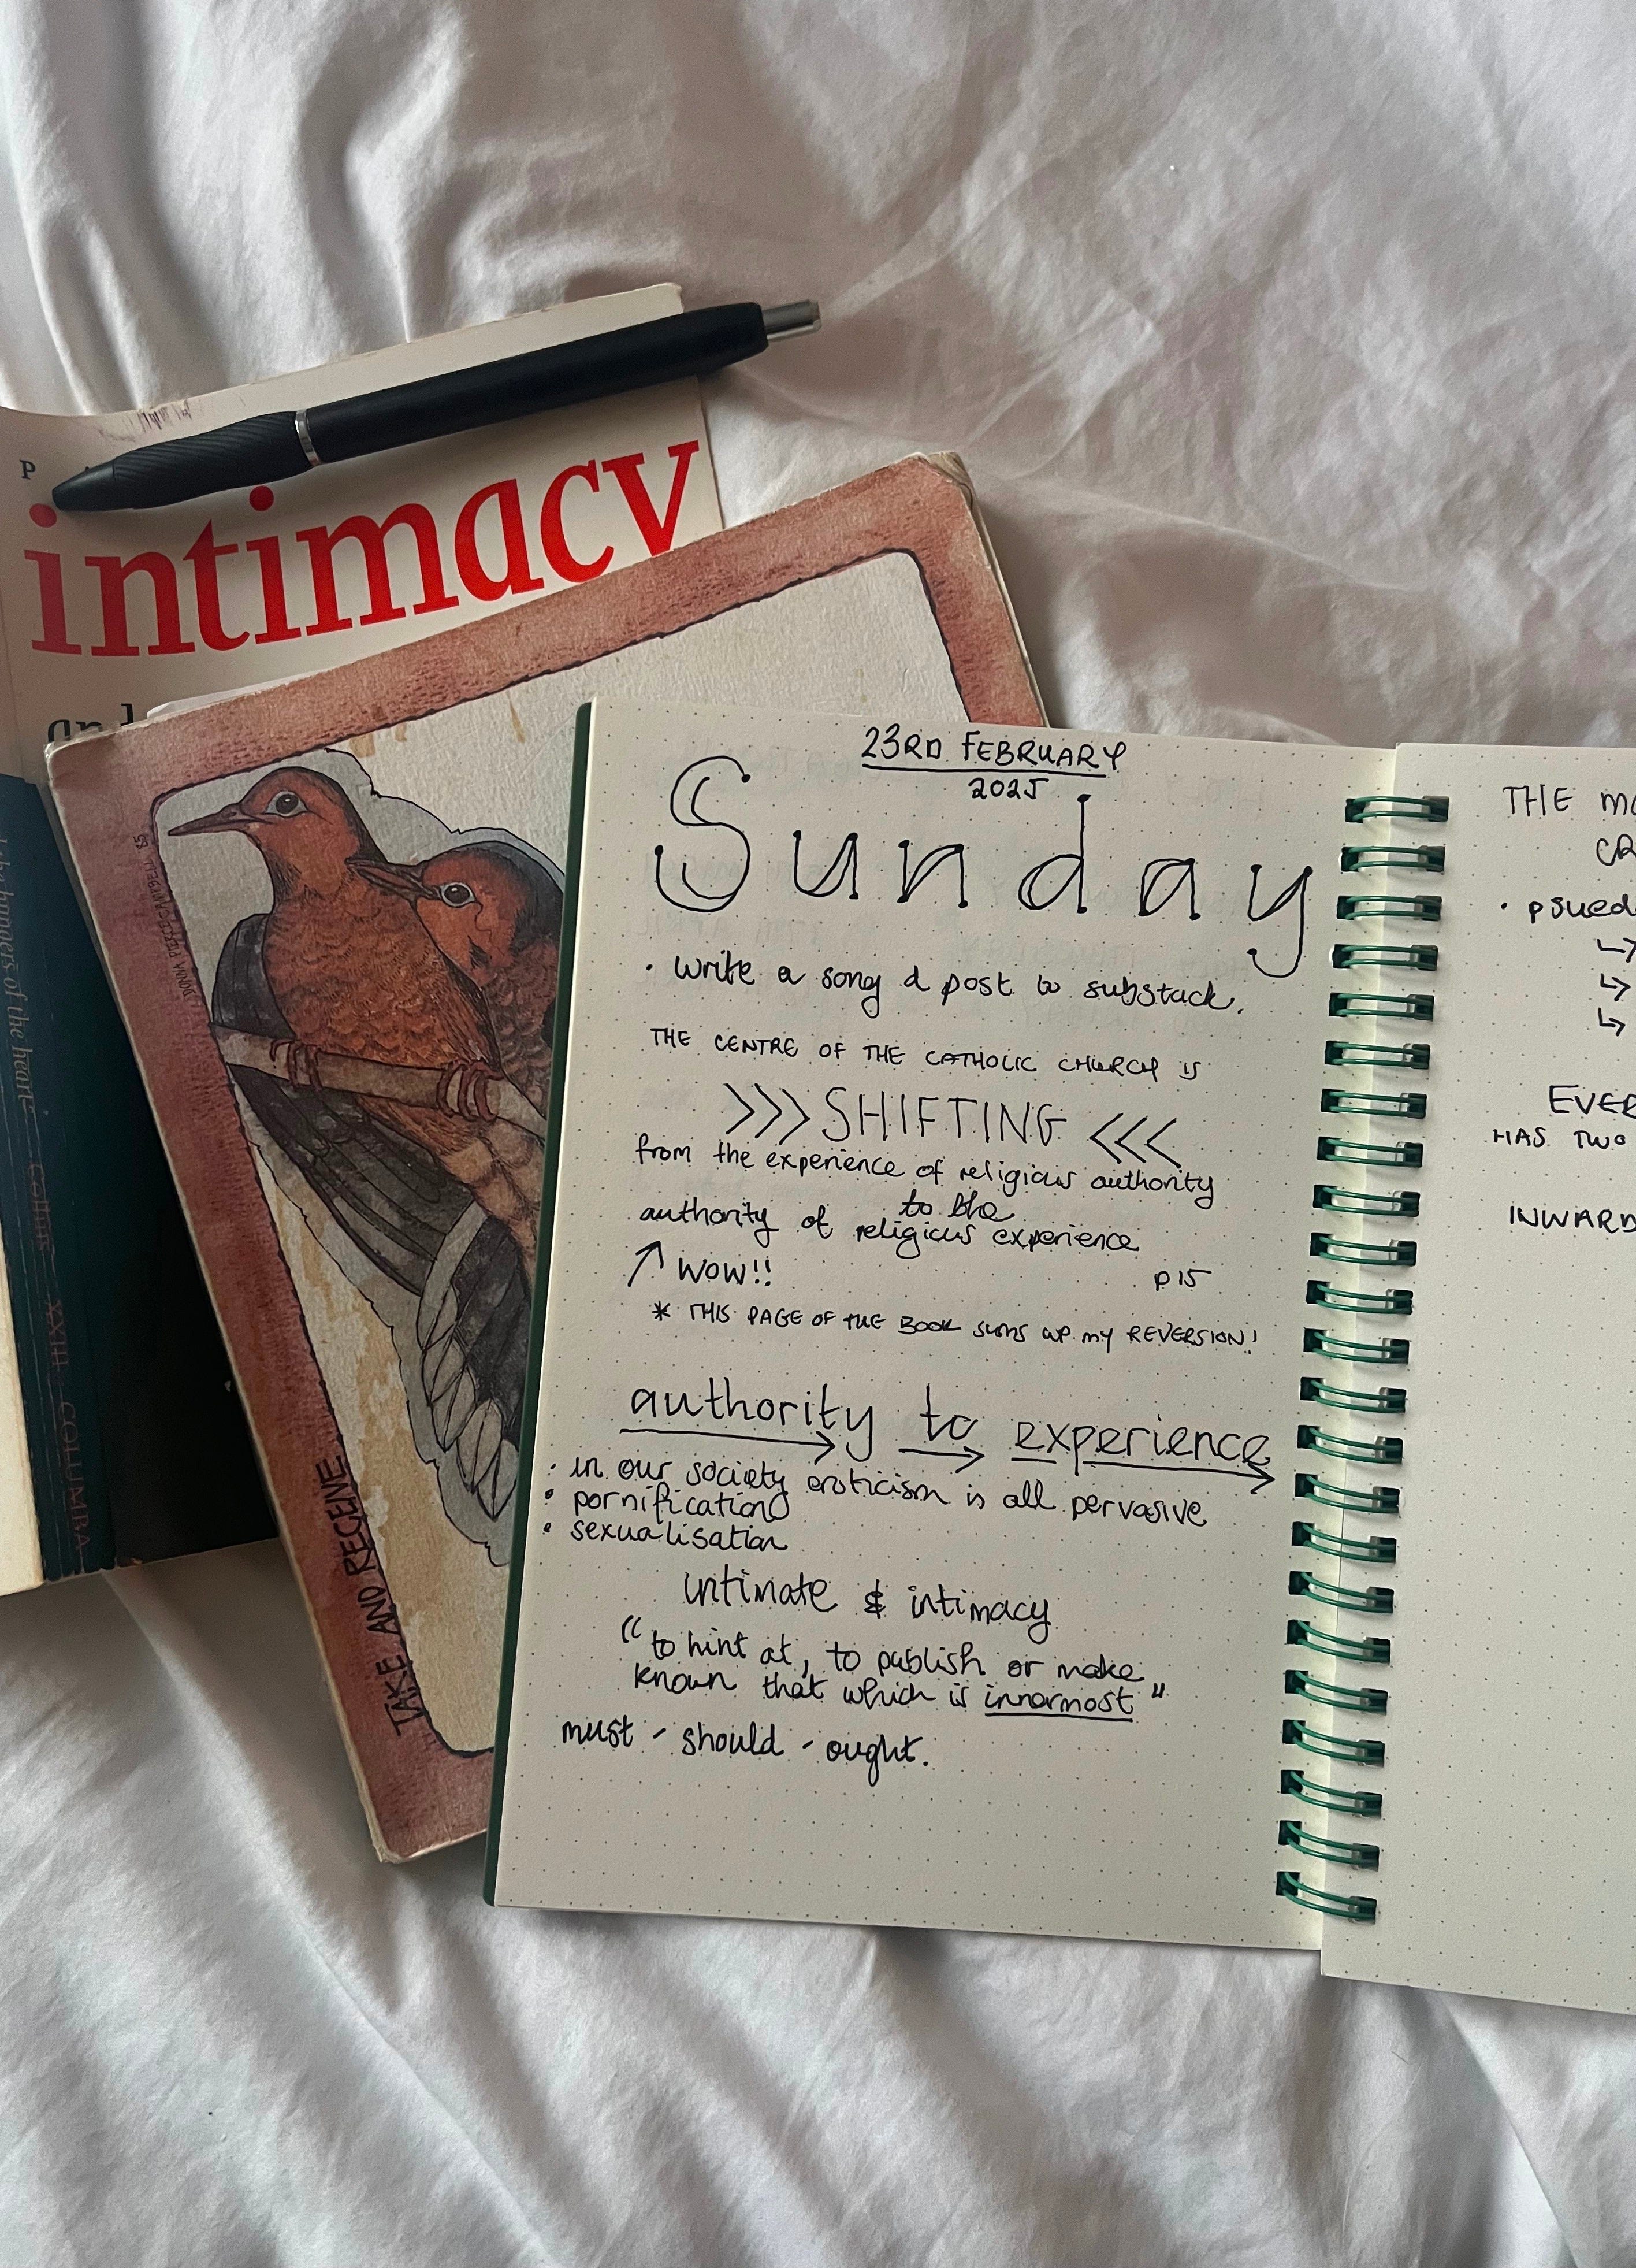 intimacy
labanners of the heart - Collins XXIII COLUMBA
DONNA PIERCE CAMPBELL 85
TAKE AND RECEIVE
23RD FEBRUARY
2025
Sunday
• write a song & post to substack.
THE CENTRE OF THE CATHOLIC CHURCH IS
>>> SHIFTING <<<
from the experience of religious authority
to the
authority of religious experience
↗ WOW!! p15
* THIS PAGE OF THE BOOK SUMS UP MY REVERSION!
authority to experience
• in our society eroticism is all pervasive
• pornification
• sexualisation
intimate & intimacy
"to hint at, to publish or make
known that which is innermost"
must - should - ought.
THE
• psued
↳
↳
↳
EVER
HAS TWO
INWARD